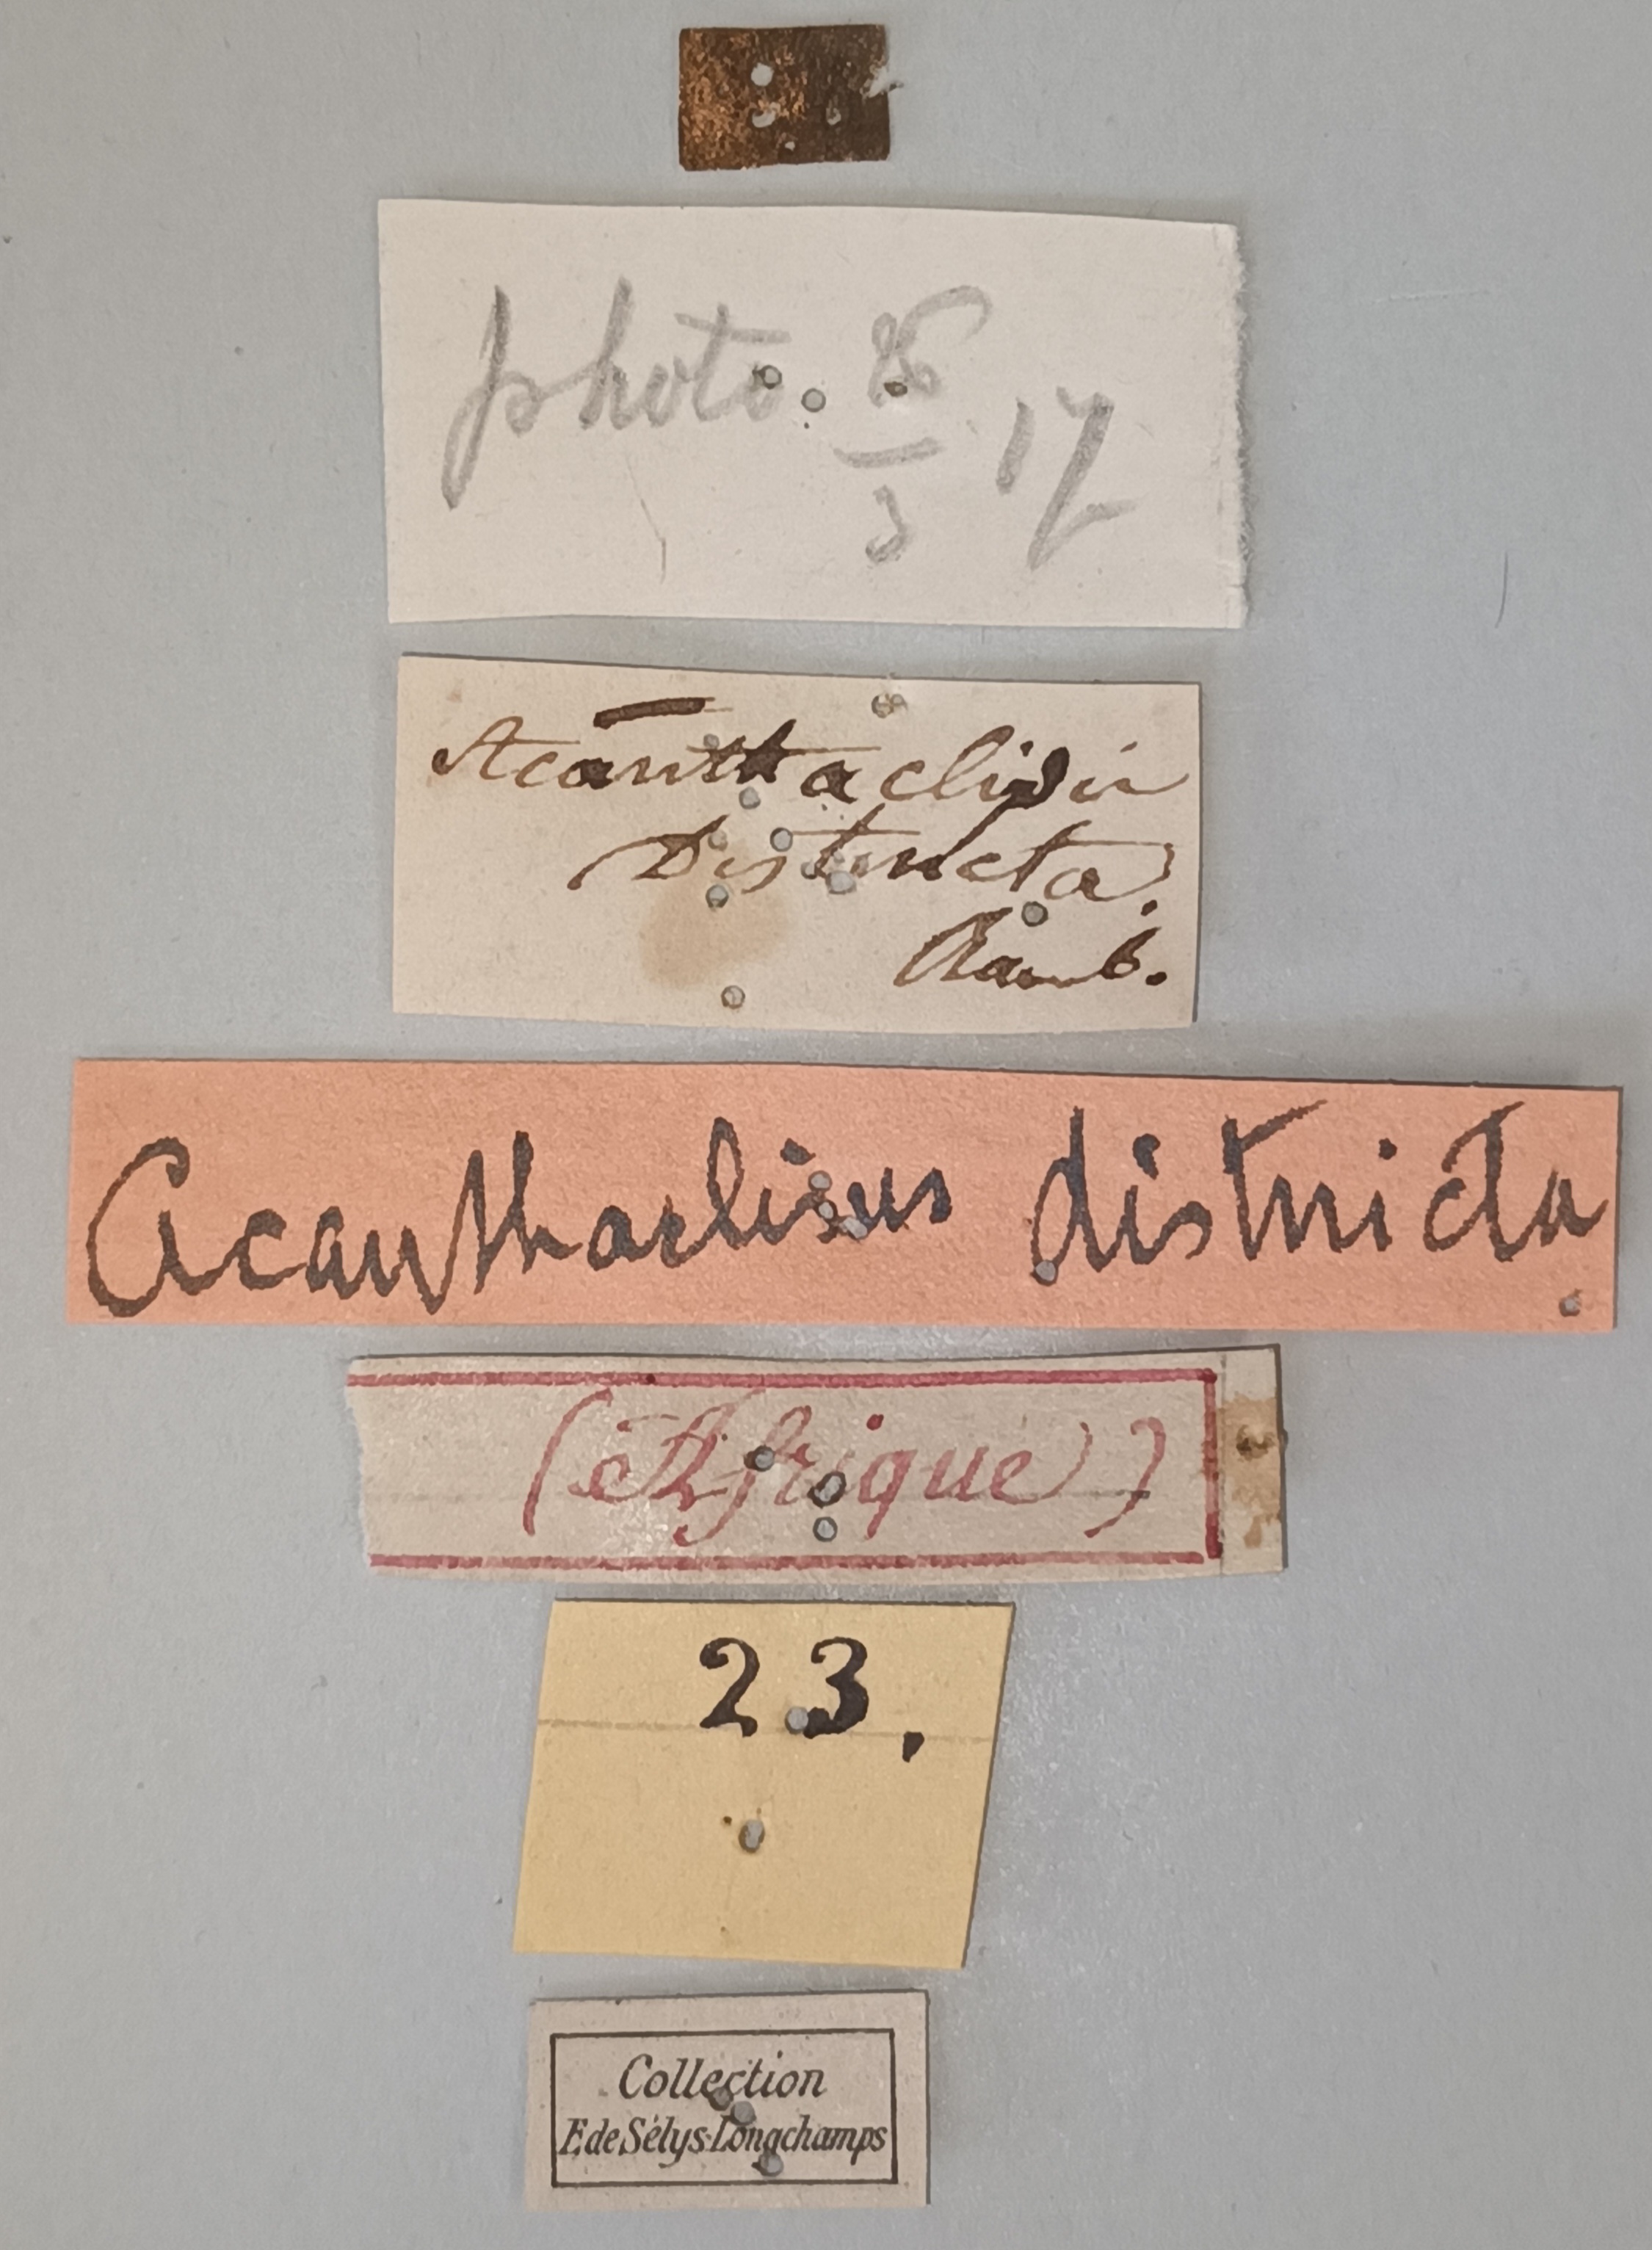 photo. 26/3 17
Acanthaclisis
Distincta.
Ramb.
Acanthaclisus districta
(Afrique)
23.
Collection
E de Sélys-Longchamps